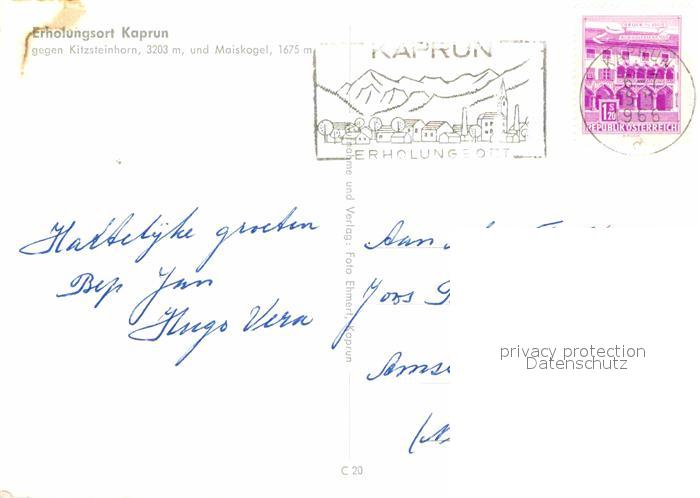 Erholungsort Kaprun
gegen Kitzsteinhorn, 3203 m, und Maiskogel, 1675 m
KAPRUN
ERHOLUNGSORT
1 S 20
REPUBLIK ÖSTERREICH
KAPRUN
1966
Hartelijke groeten
Bep Jan
Hugo Vera
Aan
Joos
Amse
privacy protection
Datenschutz
ahme und Verlag: Foto Ehmert, Kaprun
C 20